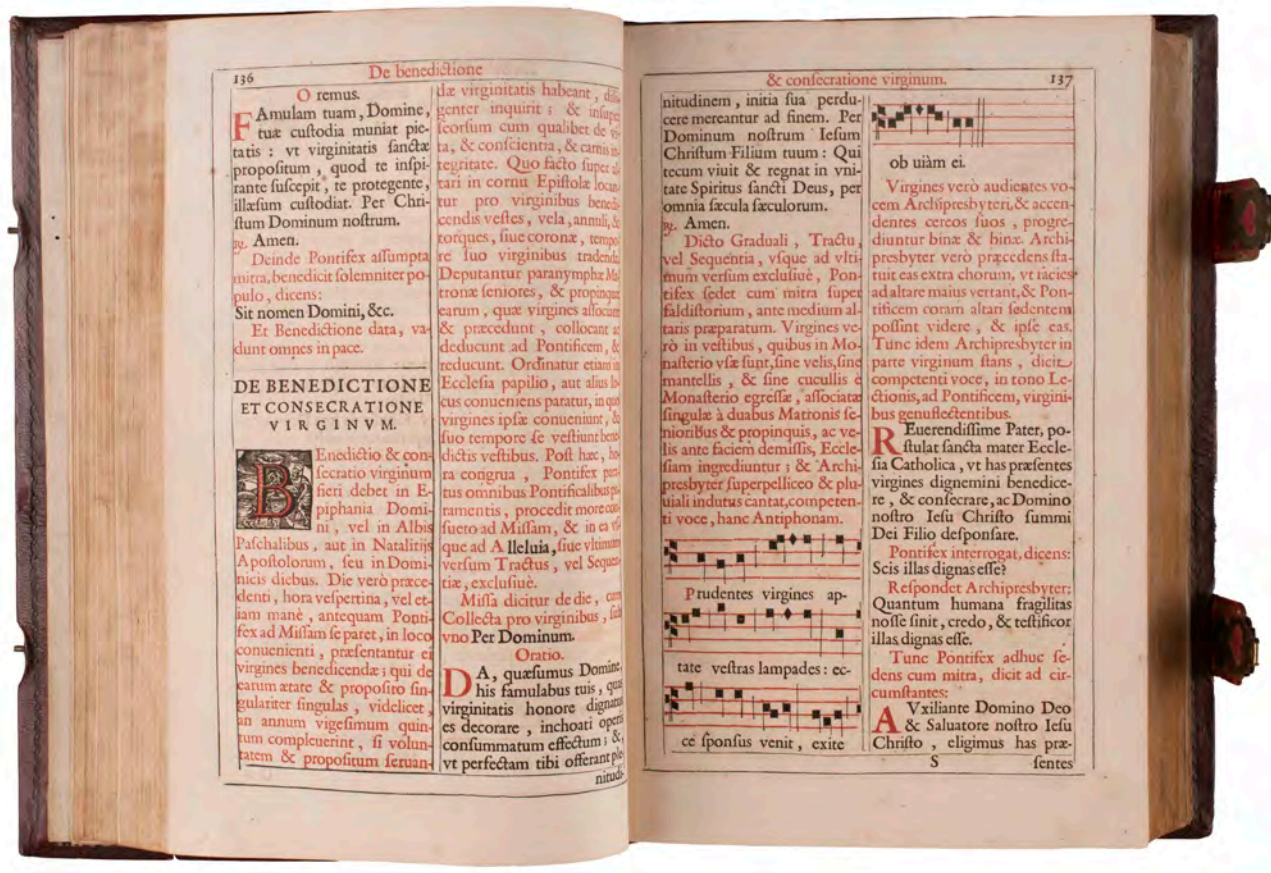 136
De benedictione
O remus.
FAmulam tuam, Domine,
tuæ cuſtodia muniat pie-
tatis : vt virginitatis ſanctæ
propoſitum , quod te inſpi-
rante ſuſcepit , te protegente,
illæſum cuſtodiat. Per Chri-
ſtum Dominum noſtrum.
℟. Amen.
Deinde Pontifex aſſumpta
mitra, benedicit ſolemniter po-
pulo , dicens:
Sit nomen Domini, &c.
Et Benedictione data, va-
dunt omnes in pace.
DE BENEDICTIONE
ET CONSECRATIONE
VIRGINVM.
BEnedictio & con-
ſecratio virginum
fieri debet in E-
piphania Domi-
ni , vel in Albis
Paſchalibus , aut in Natalitijs
Apoſtolorum , ſeu in Domi-
nicis diebus. Die verò præce-
denti , hora veſpertina , vel et-
iam manè , antequam Ponti-
fex ad Miſſam ſe paret, in loco
conuenienti , præſentantur ei
virgines benedicendæ ; qui de
earum ætate & propoſito ſin-
gulariter ſingulas , videlicet ,
an annum vigeſimum quin-
tum compleuerint , ſi volun-
tatem & propoſitum ſeruan-
dæ virginitatis habeant , dili-
genter inquirit ; & inſuper
ſeorſum cum qualibet de vi-
ta, & conſcientia, & carnis in-
tegritate. Quo facto ſuper al-
tari in cornu Epiſtolæ locan-
tur pro virginibus benedi-
cendis veſtes , vela , annuli, &
torques , ſiue coronæ , tempo-
re ſuo virginibus tradendi.
Deputantur paranymphæ Ma-
tronæ ſeniores , & propinquæ
earum , quæ virgines aſſociant
& præcedunt , collocant ac
deducunt ad Pontificem, &
reducunt. Ordinatur etiam in
Eccleſia papilio , aut alius lo-
cus conueniens paratur, in quo
virgines ipſæ conueniunt , &
ſuo tempore ſe veſtiunt bene-
dictis veſtibus. Poſt hæc , ho-
ra congrua , Pontifex para-
tus omnibus Pontificalibus pa-
ramentis , procedit more con-
ſueto ad Miſſam , & in ea vſ-
que ad Alleluia, ſiue vltimum
verſum Tractus , vel Sequen-
tiæ , excluſiuè.
Miſſa dicitur de die , cum
Collecta pro virginibus , ſub
vno Per Dominum.
Oratio.
DA, quæſumus Domine,
his famulabus tuis , quas
virginitatis honore dignatus
es decorare , inchoati operis
conſummatum effectum ; & ,
vt perfectam tibi offerant ple-
nitudi-
& conſecratione virginum.
137
nitudinem , initia ſua perdu-
cere mereantur ad finem. Per
Dominum noſtrum Ieſum
Chriſtum Filium tuum : Qui
tecum viuit & regnat in vni-
tate Spiritus ſancti Deus, per
omnia ſæcula ſæculorum.
℟. Amen.
Dicto Graduali , Tractu,
vel Sequentia , vſque ad vlti-
mum verſum excluſiuè , Pon-
tifex ſedet cum mitra ſuper
faldiſtorium , ante medium al-
taris præparatum. Virgines ve-
rò in veſtibus , quibus in Mo-
naſterio vſæ ſunt, ſine velis, ſine
mantellis , & ſine cucullis è
Monaſterio egreſſæ , aſſociatæ
ſingulæ à duabus Matronis ſe-
nioribus & propinquis , ac ve-
lis ante faciem demiſſis, Eccle-
ſiam ingrediuntur ; & Archi-
presbyter ſuperpelliceo & plu-
uiali indutus cantat, competen-
ti voce , hanc Antiphonam.
Prudentes virgines ap-
tate veſtras lampades : ec-
ce ſponſus venit , exite
ob uiàm ei.
Virgines verò audientes vo-
cem Archipresbyteri, & accen-
dentes cereos ſuos , progre-
diuntur binæ & binæ. Archi-
presbyter verò præcedens ſta-
tuit eas extra chorum, vt facies
ad altare maius vertant, & Pon-
tificem coram altari ſedentem
poſſint videre , & ipſe eas.
Tunc idem Archipresbyter in
parte virginum ſtans , dicit
competenti voce, in tono Le-
ctionis, ad Pontificem, virgini-
bus genuflectentibus.
REuerendiſſime Pater, po-
ſtulat ſancta mater Eccle-
ſia Catholica , vt has præſentes
virgines dignemini benedice-
re , & conſecrare, ac Domino
noſtro Ieſu Chriſto ſummi
Dei Filio deſponſare.
Pontifex interrogat, dicens:
Scis illas dignas eſſe?
Reſpondet Archipresbyter:
Quantum humana fragilitas
noſſe ſinit , credo , & teſtificor
illas dignas eſſe.
Tunc Pontifex adhuc ſe-
dens cum mitra , dicit ad cir-
cumſtantes:
AVxiliante Domino Deo
& Saluatore noſtro Ieſu
Chriſto , eligimus has præ-
S
ſentes